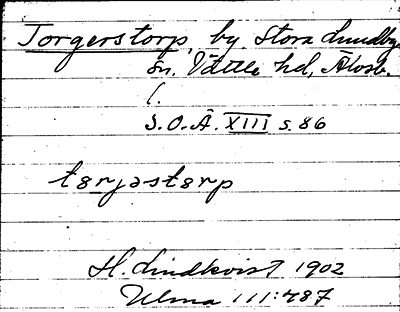 Torgerstorp, by. Stora Lundby
sn. Vättle hd, Älvsb.
l.
S.O.Ä. XIII s. 86
tɵrjastɵrp
H. Lindkvist 1902
Ulma 111:487